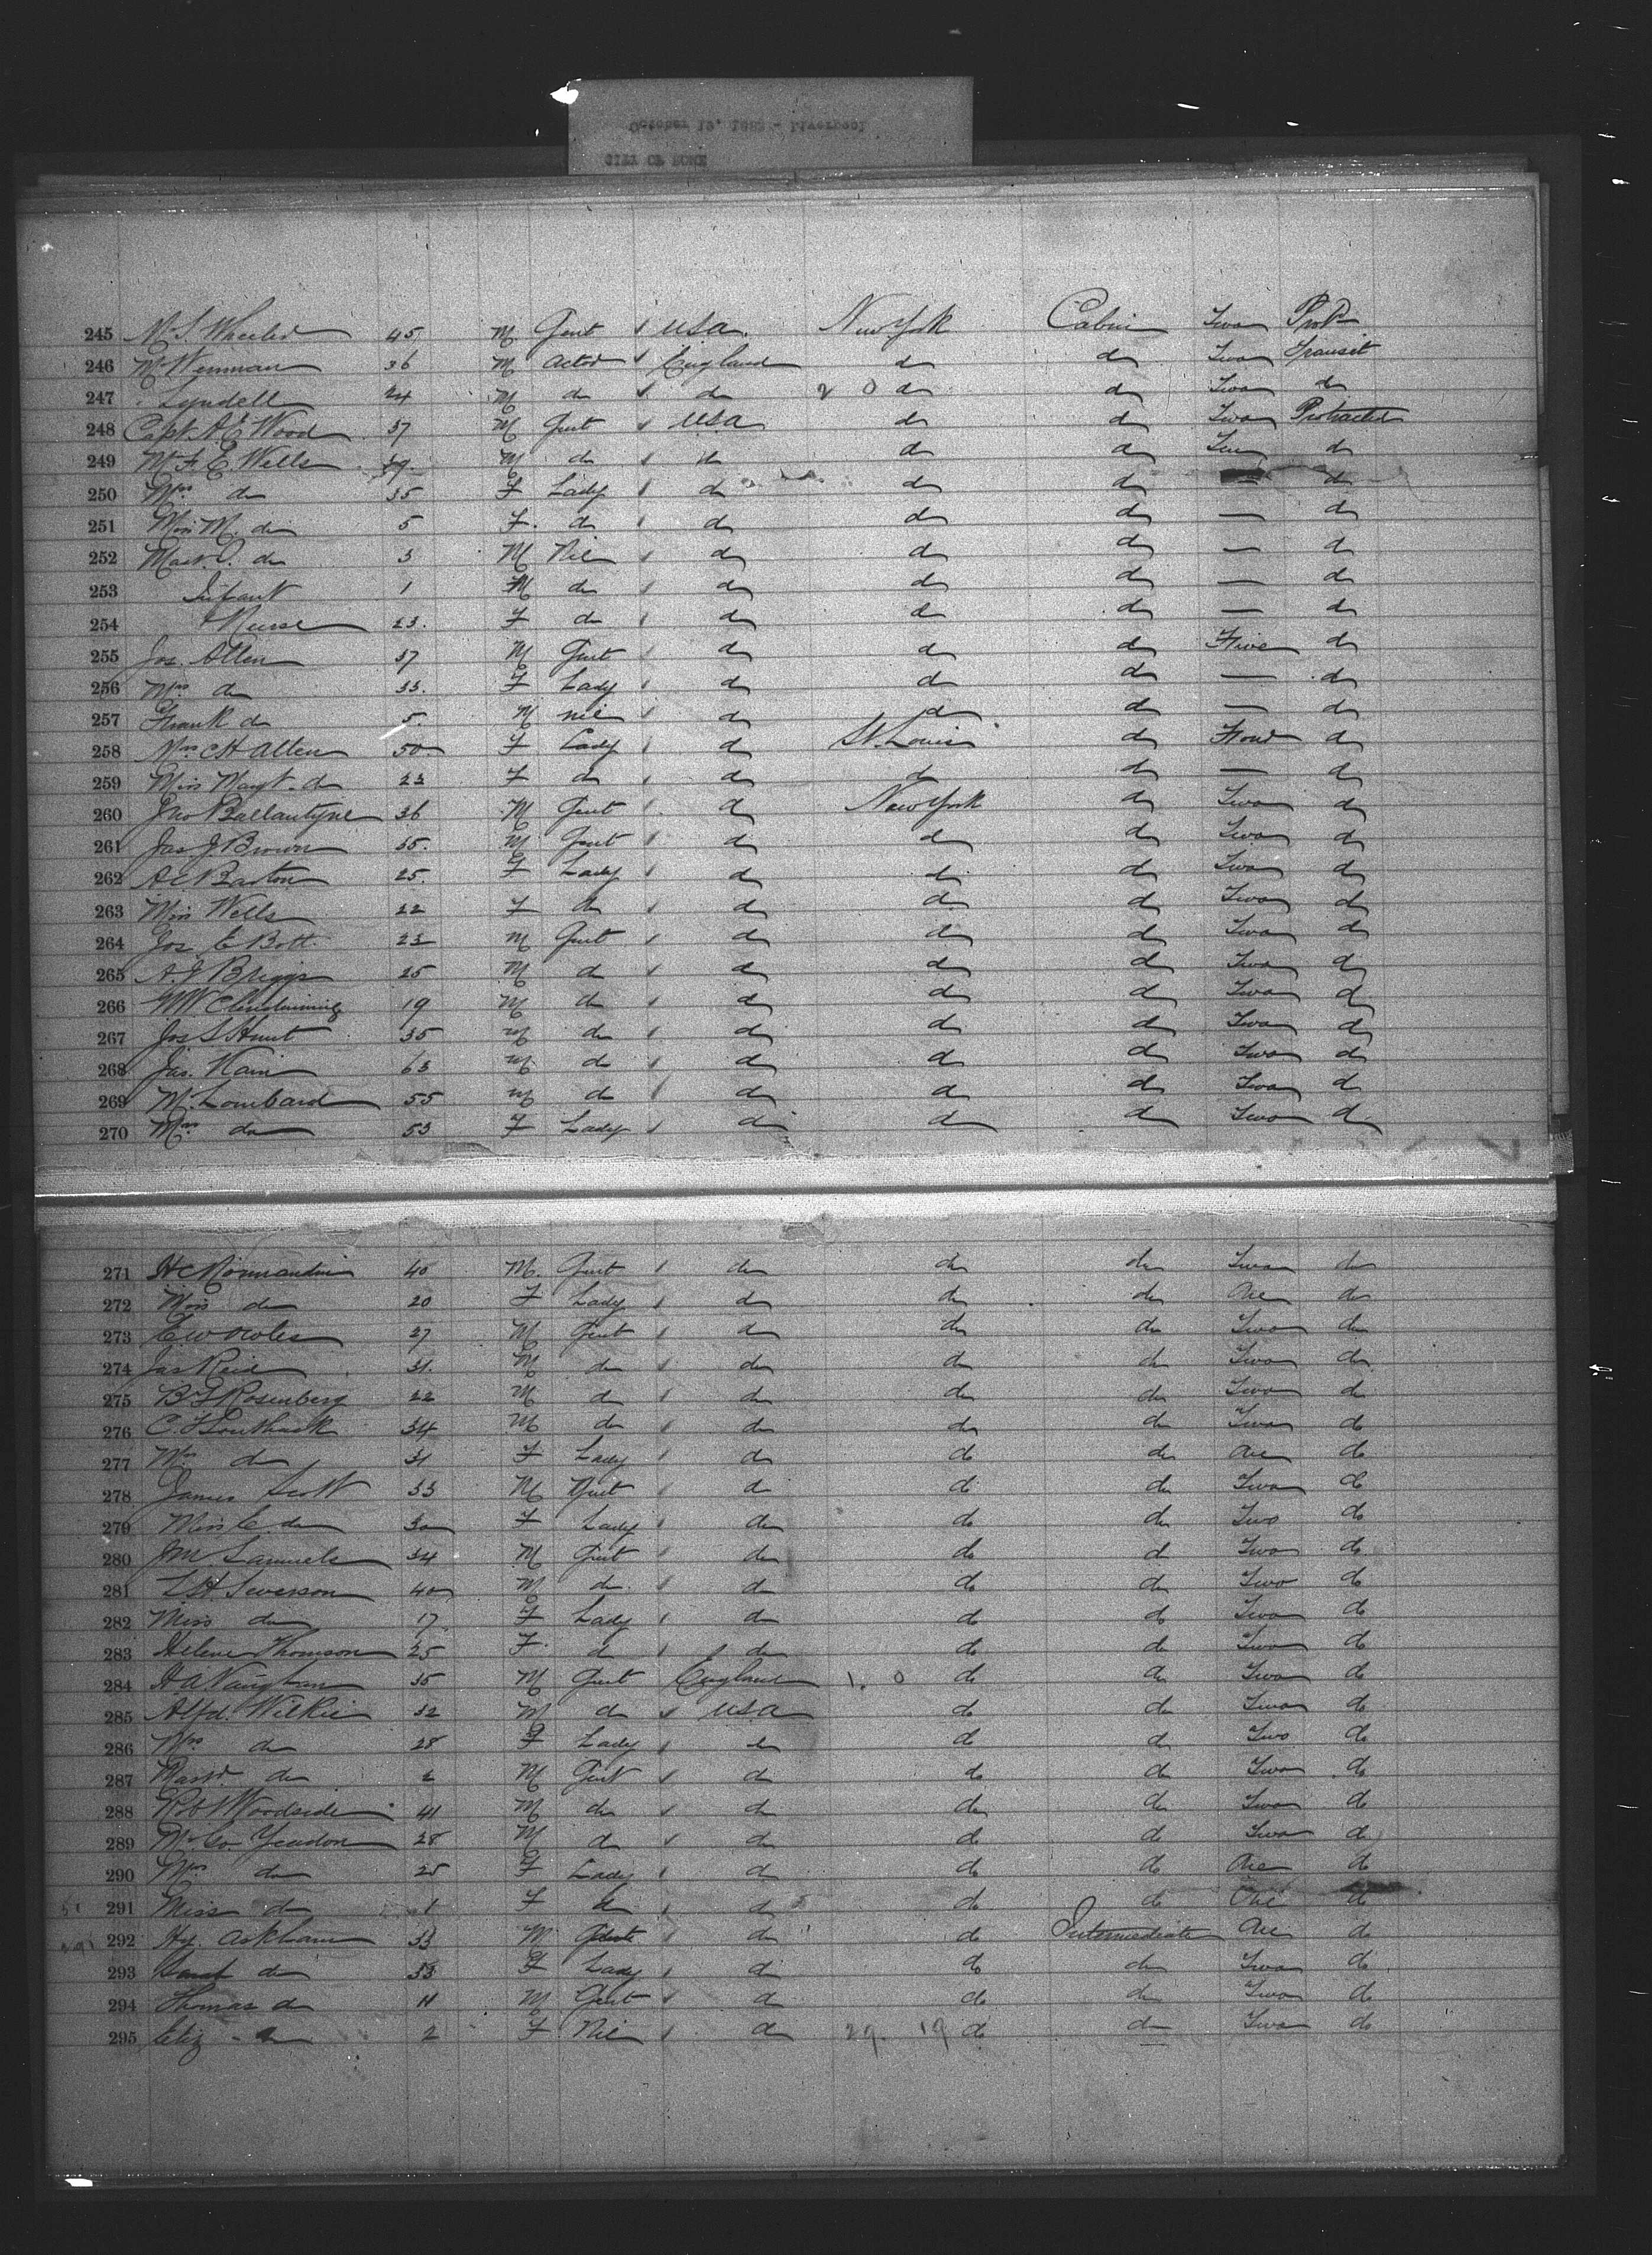 October 12, 188 - Liverpool
CITY OF ROME
245 Mr S. Wheeler 45 M Gent USA New York Cabin Two Prot
246 Mr Wenman 36 M Actor England do do Two Transit
247 Lyndell 24 M do do 2 0 do do Two do
248 Capt. A.E. Wood 37 M Gent USA do do Two Protracted
249 Mr F. E. Wells 39 M do do do do Two do
250 Mrs do 35 F Lady do do do — do
251 Miss M. do 5 F. do do do do — do
252 Mast. O. do 3 M Nil do do do — do
253 Infant 1 M do do do do — do
254 Nurse 23. F do do do do — do
255 Jos. Allen 37 M Gent do do do Five do
256 Mrs do 33. F Lady do do do — do
257 Frank do 5. M nil do do do — do
258 Mrs C H Allen 50 F Lady do St. Louis do Four do
259 Miss Magt. do 22 F do do do do — do
260 Jno Ballantyne 36 M Gent do New York do Two do
261 Jas J. Brown 35. M Gent do do do Two do
262 A E Barton 25. F Lady do do do Two do
263 Miss Wells 22 F do do do do Two do
264 Jos. E Bott 23 M Gent do do do Two do
265 A. J Briggs 25 M do do do do Two do
266 W W Clendinning 19 M do do do do Two do
267 Jos S Hunt 35 M do do do do Two do
268 Jas. Kain 63 M do do do do Two do
269 M. Lombard 55 M do do do do Two do
270 Mrs do 53 F Lady do do do Two do
271 H C Normandin 40 M. Gent do do do Two do
272 Miss do 20 F Lady do do do One do
273 E W Owles 27 M Gent do do do Two do
274 Jas Reid 31. M do do do do Two do
275 B F Rosenberg 22 M do do do do Two do
276 C. F Southack 34 M do do do do Two do
277 Mrs do 31 F Lady do do do One do
278 James Scott 33 M Gent do do do Two do
279 Miss C. do 30 F Lady do do do Two do
280 J M. Samuels 34 M Gent do do do Two do
281 L H. Severson 40 M do do do do Two do
282 Miss do 17 F Lady do do do Two do
283 Helene Thomson 25 F. do do do do Two do
284 H A Vaughan 35 M Gent England 1. 0 do do Two do
285 Alfd. Wilkie 32 M do USA do do Two do
286 Mrs do 28 F Lady do do do Two do
287 Mastr. do 2 M Gent do do do Two do
288 Robt Woodside 41 M do do do do Two do
289 Mr Geo. Yendon 28 M do do do do Two do
290 Mrs do 25 F Lady do do do One do
291 Miss do 1 F do do do do One do
292 Hy. Askham 33 M Gent do do Intermediate One do
293 Sarah do 33 F Lady do do do Two do
294 Thomas do 11 M Gent do do do Two do
295 Eliz do 2 F. Nil do 29. 19 do do Two do